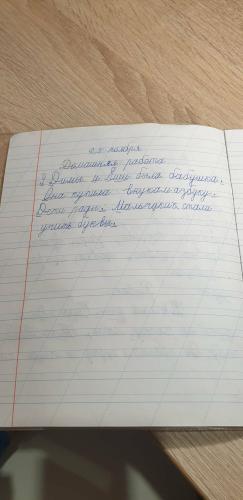 25 ноября
Домашняя работа
У Димы и Вити была бабушка.
Она купила внукам азбуку.
Дети рады. Мальчики стали
учить буквы.